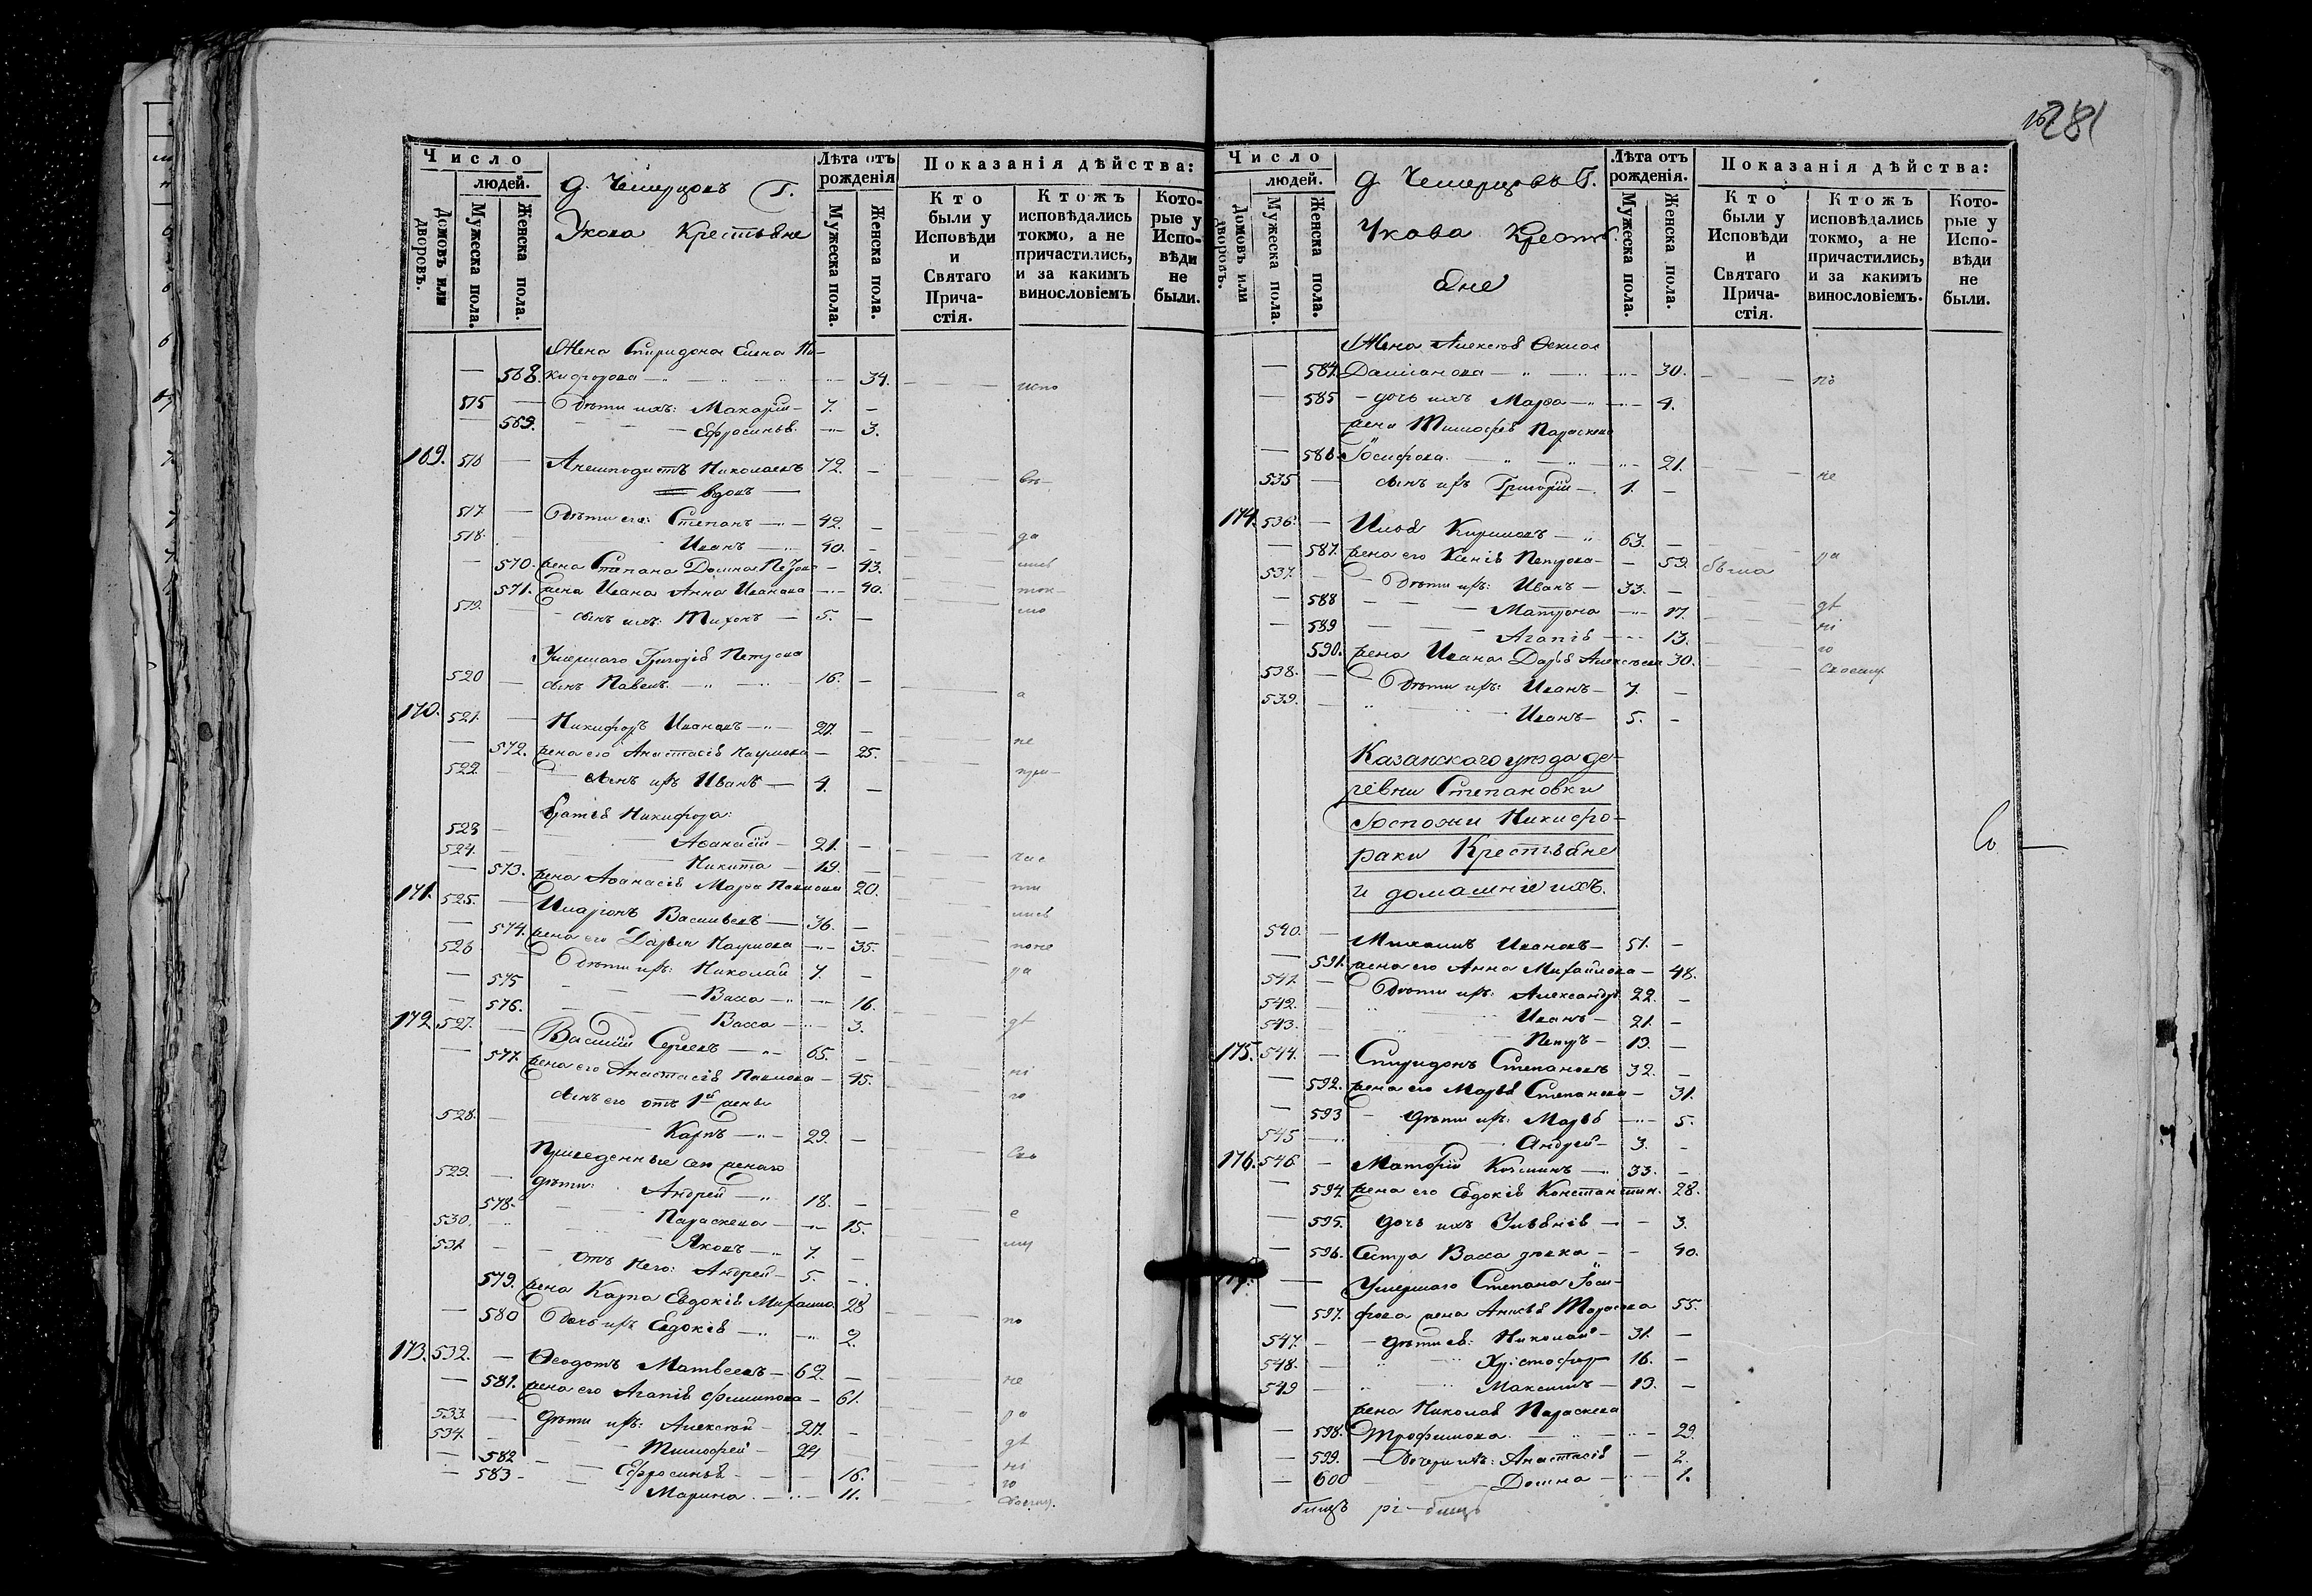 281
Число
людей.
Домовъ или дворовъ.
Мужеска пола.
Женска пола.
д. Чемерцовъ Г.
Укова Крестьяне
Лѣта отъ рожденія
Мужеска пола.
Женска пола.
Показанія дѣйства:
Кто были у Исповѣди и Святаго Причастія.
Ктожъ исповѣдались токмо, а не причастились, и за какимъ винословіемъ
Которые у Исповѣди не были.
Жена Спиридона Елена Ни-
568. кифорова 34.
515 Дѣти ихъ: Макарій 7.
569. Ефросинья 3.
169. 516 Анемподистъ Николаевъ 72.
вдовъ
517 Дѣти его: Степанъ 42.
518. Иванъ 40.
570. жена Степана Домна Петрова 43.
571. жена Ивана Анна Иванова 40.
519. сынъ ихъ: Тихонъ 5.
Умершаго Григорія Петрова
520 сынъ Павелъ 16.
170. 521. Никифоръ Ивановъ 27.
572. жена его Анастасія Наумова 25.
522. сынъ ихъ Иванъ 4.
братья Никифора:
523 Аѳанасій 21.
524. Никита 19.
573. жена Аѳанасія Марѳа Павлова 20.
171. 525. Иларіонъ Васильевъ 36.
574. жена его Дарья Наумова 35.
526 Дѣти ихъ: Николай 7.
575 Васса 16.
576. Васса 3.
172. 527. Василій Сергеевъ 65.
577. жена его Анастасія Павлова 45.
сынъ его отъ 1й жены
528. Карпъ 29.
Приведенные ею
529. дѣти: Андрей 18.
578. Параскева 15.
530. Яковъ 7.
531. отъ Него: Андрей 5.
579. жена Карпа Евдокія Михайлова 28
580 Дочь ихъ Евдокія 2.
173. 532. Ѳеодотъ Матвеевъ 62.
581. жена его Агапія Филипова 61.
533. дѣти ихъ: Алексѣй 27.
534. Тимофей 24
582 Ефросинья 16.
583 Марина 11.
Число
людей.
Домовъ или дворовъ.
Мужеска пола.
Женска пола.
д Чемерцовъ Г.
Укова Кресть
яне
Лѣта отъ рожденія.
Мужеска пола.
Женска пола.
Показанія дѣйства:
Кто были у Исповѣди и Святаго Причастія.
Ктожъ исповѣдались токмо, а не причастились, и за какимъ винословіемъ.
Которые у Исповѣди не были.
Жена Алексѣя Ѳекла
584. Даміанова 30.
585 дочь ихъ Марѳа 4.
жена Тимофея Параскева
586. Іосифова 21.
535 сынъ ихъ Григорій 1.
174. 536. Илья Кириловъ 63.
587. жена его Ксенія Петрова 59.
537. Дѣти ихъ: Иванъ 33.
588 Матрона 17.
589 Агапія 13.
590. жена Ивана Дарья Алексѣева 30.
538. Дѣти ихъ: Иванъ 7.
539. Иванъ 5.
Казанскаго уѣзда де-
ревни Степановки
Госпожи Никифо-
раки Крестьяне
и домашніе ихъ.
540. Михаилъ Ивановъ 51.
591. жена его Анна Михайлова 48.
541. Дѣти ихъ: Александръ 22.
542. Иванъ 21.
543. Петръ 13.
175. 544. Спиридонъ Степановъ 32.
592. жена его Марья Степанова 31.
593 дѣти ихъ: Марья 5.
545 Андрей 3.
176. 546 Козминъ 33.
594. жена его Евдокія Константин. 28.
595. дочь ихъ Ульянія 3.
596. Сестра Васса дѣвка 40.
Умершаго Степана Іоси-
597. фова жена Анисья Тарасова 55.
547. дѣти ея: Николай 31.
548. Христофоръ 16.
549 Максимъ 13.
жена Николая Параскева
598. Трофимова 29.
599. Дочери ихъ: Анастасія 2.
600 Домна 1.